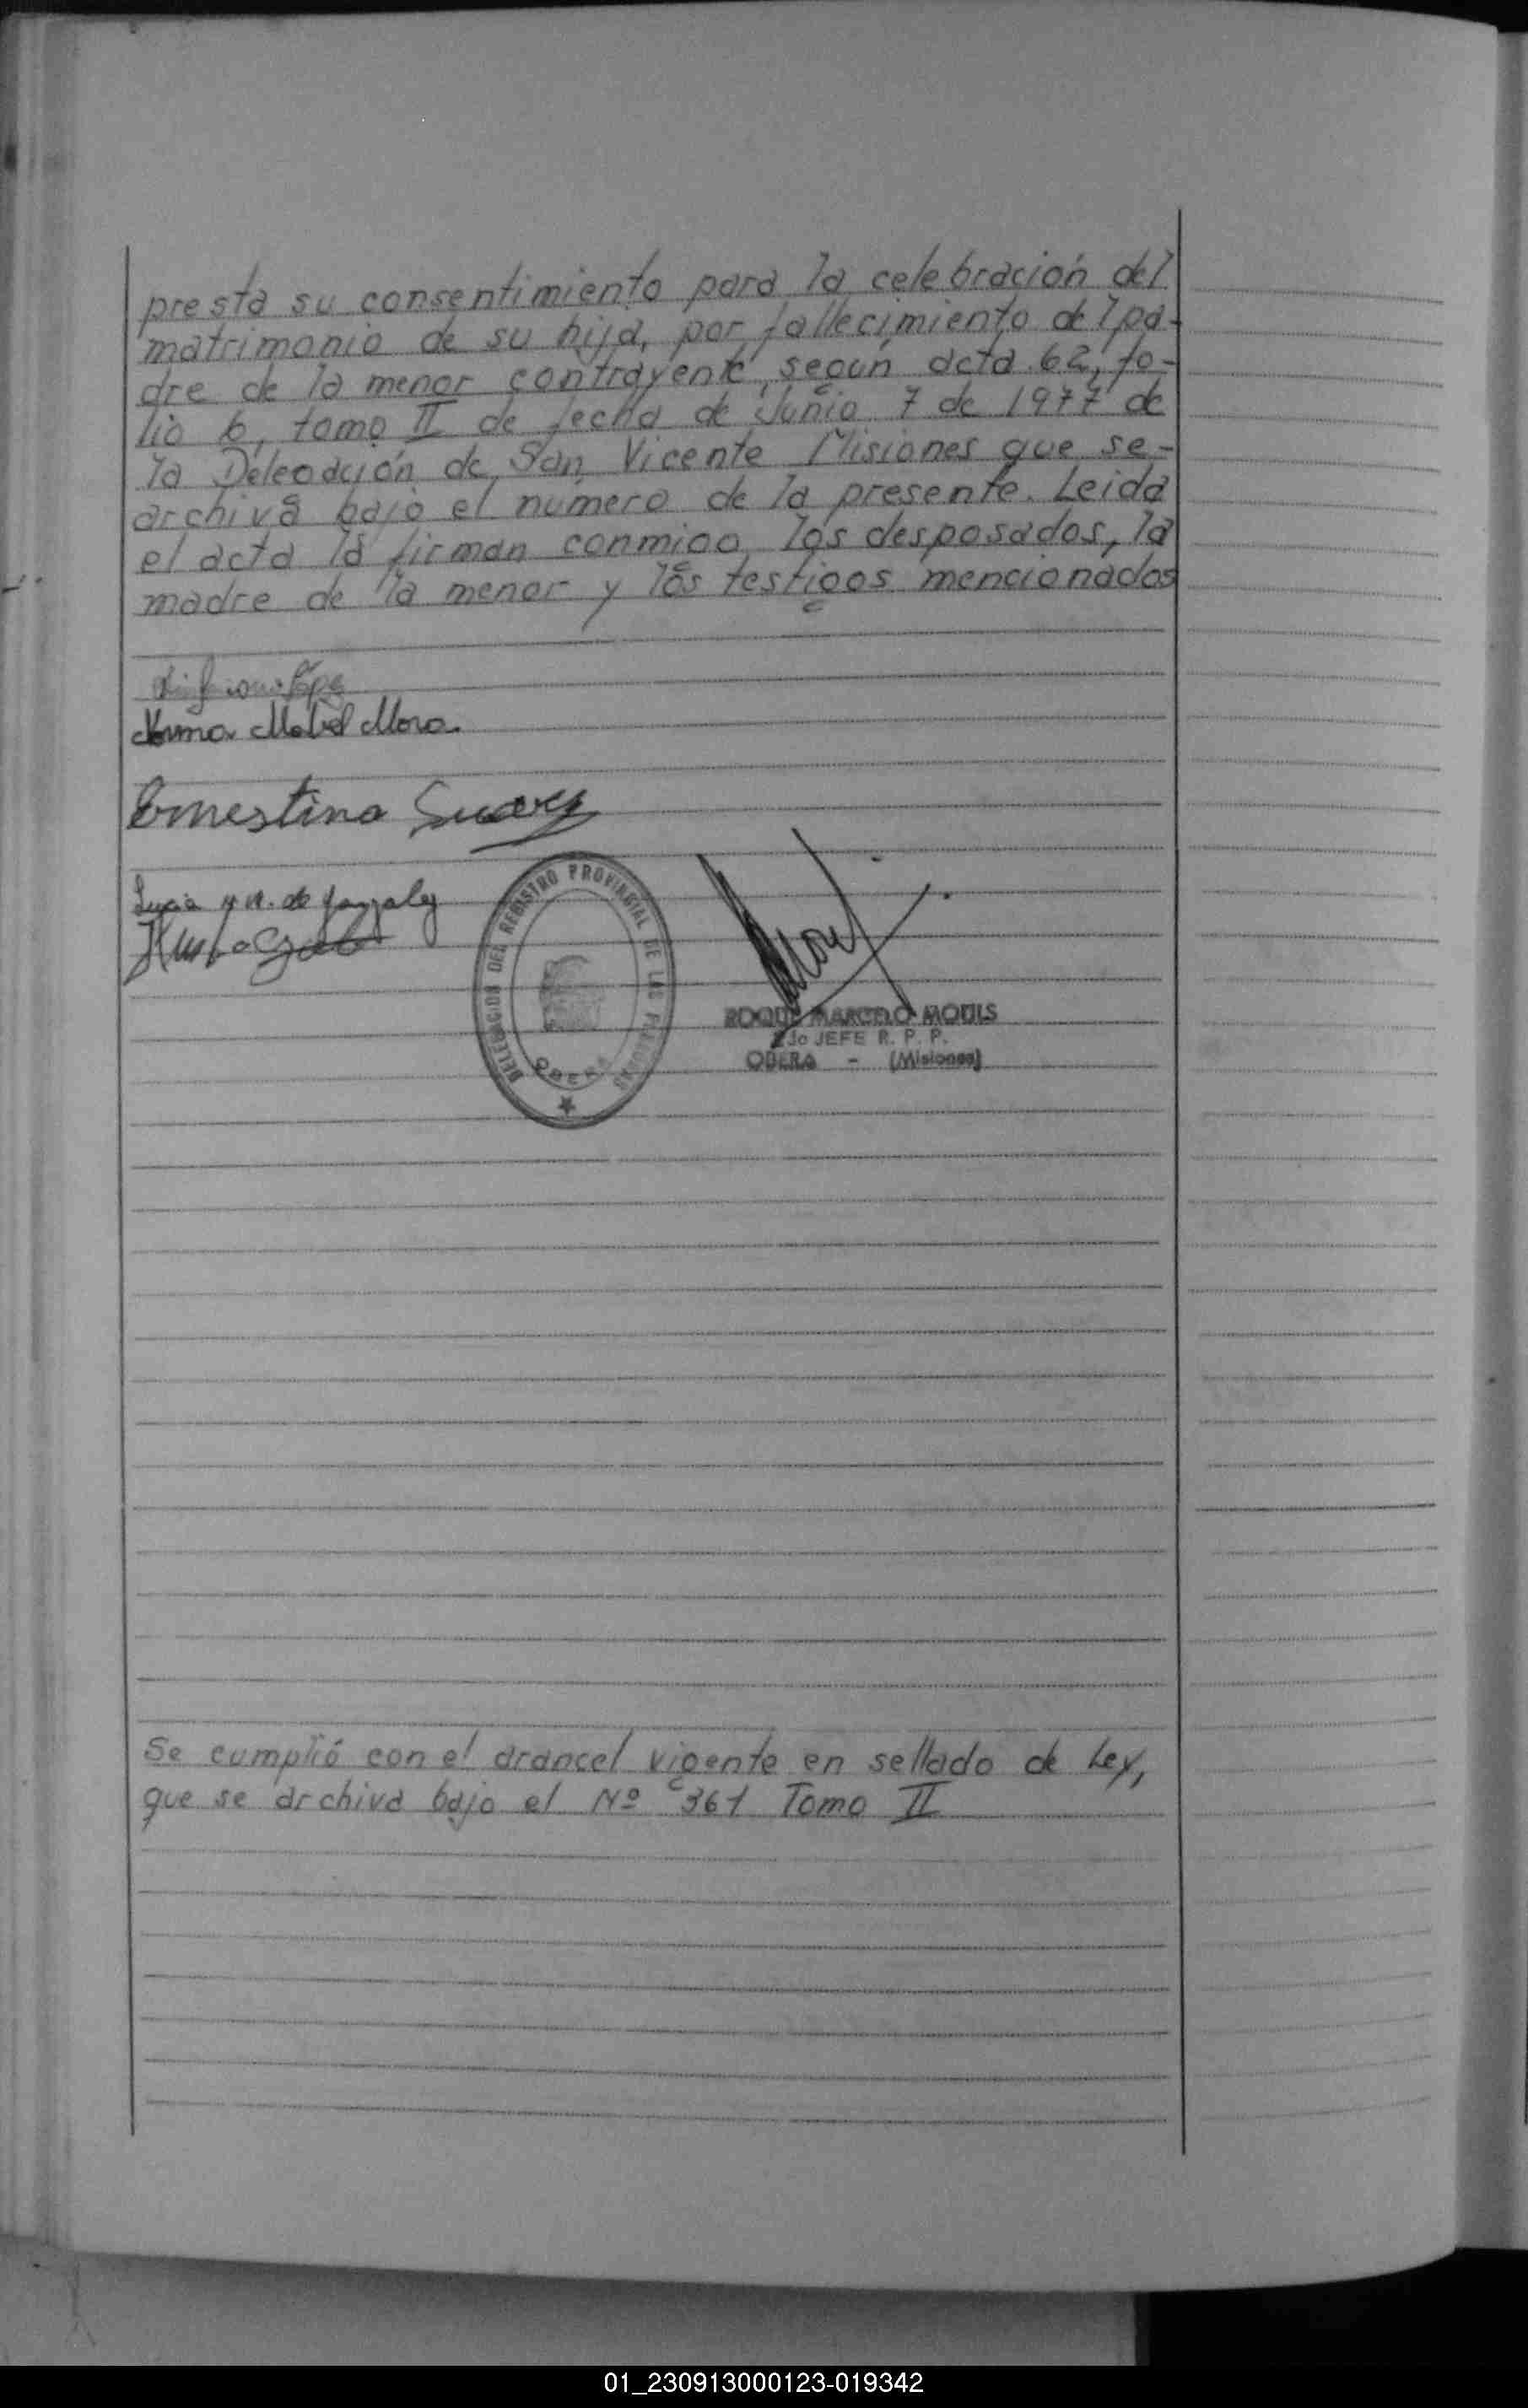 presta su consentimiento para la celebración del
matrimonio de su hija, por fallecimiento del pa-
dre de la menor contrayente, según acta 62, fo-
lio 6, tomo II de fecha de Junio 7 de 1977 de
la Delegación de San Vicente Misiones que se-
archiva bajo el número de la presente. Leida
el acta la firman conmigo los desposados, la
madre de la menor y los testigos mencionados
Norma Mabel Mora.
Ernestina Suarez
Lucia de Gonzalez
DELEGACION DEL REGISTRO PROVINCIAL DE LAS PERSONAS
OBERA
ROQUE MARCELO MOULS
JEFE R. P. P.
OBERA - (Misiones)
Se cumplió con el arancel vigente en sellado de Ley,
que se archiva bajo el Nº 361 Tomo II
01_230913000123-019342